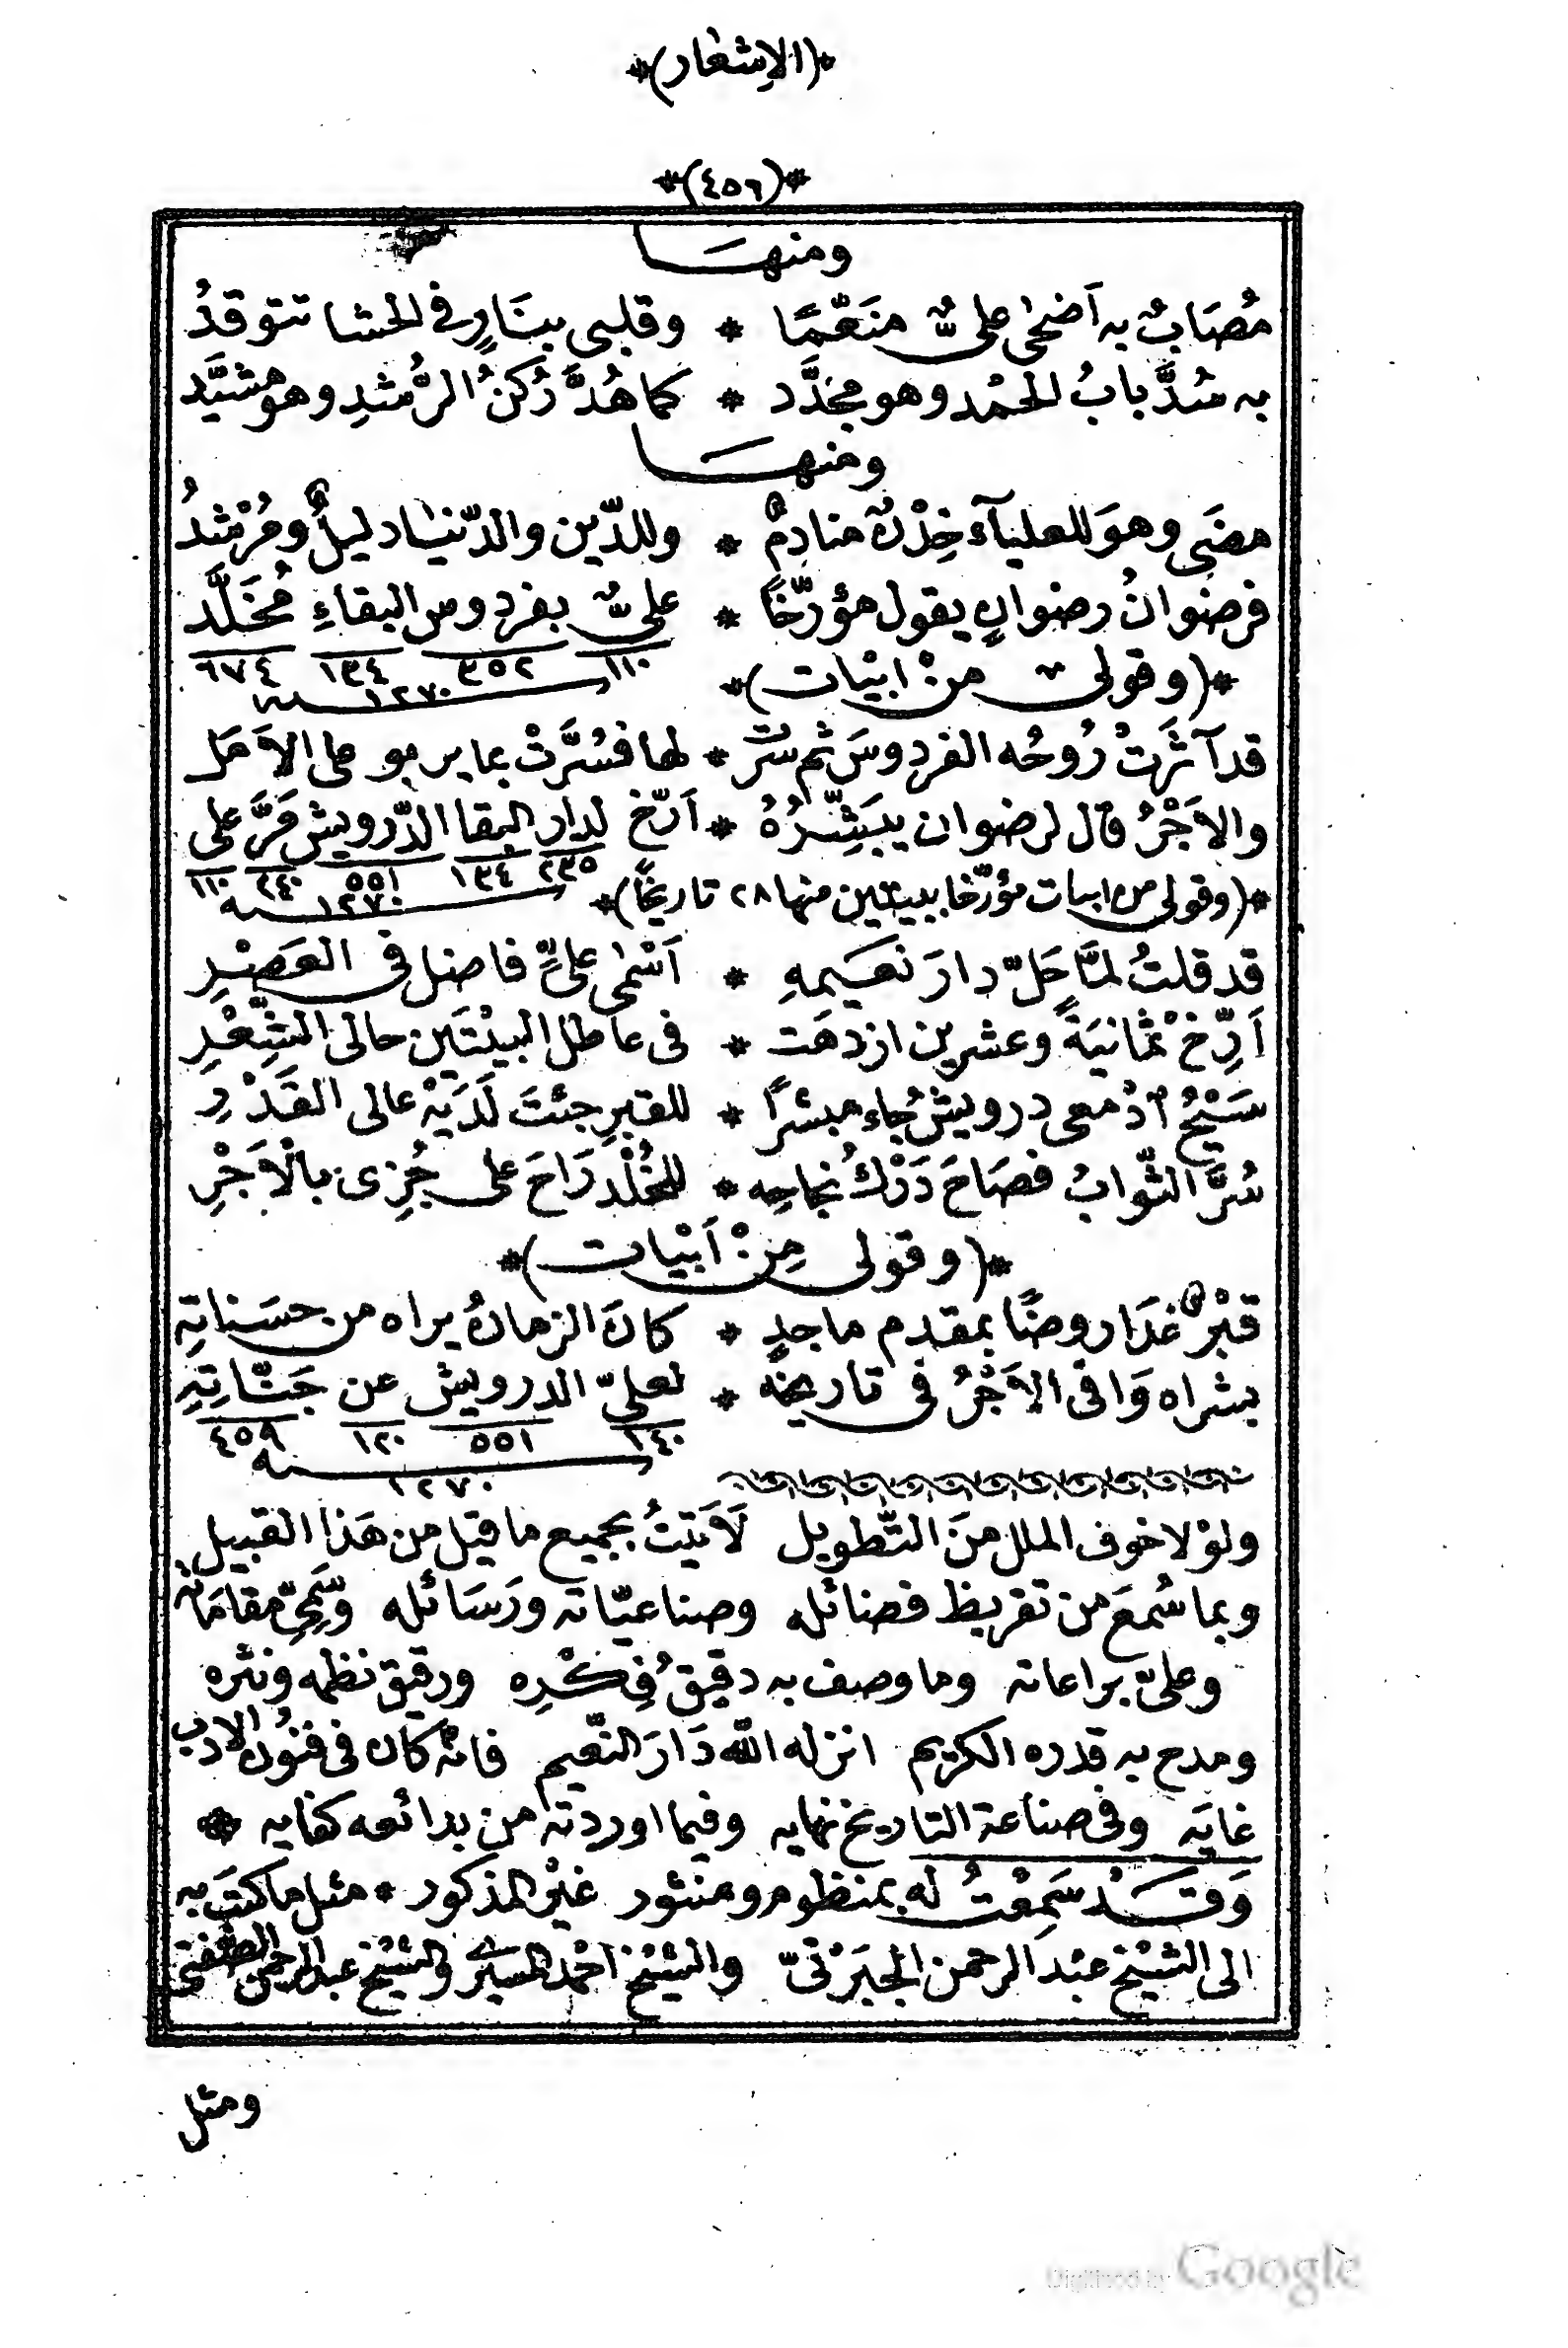 *(الاشعار)*
*(٤٥٦)*
ومنها
مُصَابٌ به اَضحٰى علىٌّ منَعَّمًا * وقلبى بنَارٍ فى الحشا تتوقدُ
به سُدَّ بابُ الحمْد وهو مجدَّد * كما هُدَّ رُكنُ الرُّشدِ وهو مشيَّد
ومنها
مضَى وهوَ للعليآء خِدْنٌ منادِمٌ * وللدّين والدّنيا دليلٌ ومُرْشدُ
فرضوانُ رضوانٍ يقول مؤرّخًا * علىٌّ بفردوس البقاءِ مُخَلَّد
١١٠ ٣٥٢ ١٣٤ ٦٧٤
سنه ١٢٧٠
*(وقولى من ابْيات)*
قد آثَرَتْ رُوحُه الفردوسَ ثم سَرَتْ * لها فسُرَّتْ بما يربو على الاَمَل
والاَجْرُ قال لرضوان يبَشِّرُهُ * اَرّخ لدار البقا الدّرويش قَرَّ على
٢٣٥ ١٣٤ ٥٥١ ٢٤٠ ١١٠
سنه ١٢٧٠
*(وقولى من ابيات مؤرّخا ببيتين منها ٢٨ تاريخًا)*
قد قلتُ لمَّا حَلّ دارَ نعَيمهِ * اَسْمٰى علىٍّ فاضل فى العَصْرِ
اَرِّخْ ثمَانيَةً وعشرين ازدهَت * فى عاطل البيْتَين حالى الشِّعْرِ
سَيْحُ اَدْمعى درويشُ جاء مبشرًا * للقبرِ جئتَ لَدَيْه عالى القَدْرِ
سُرَّ الثّوابُ فصَاحَ دَرْكُ نجاحِه * للخُلْد رَاحَ على جُزِى بالْاَجْرِ
*(وقولى مِنْ اَبْيات)*
قبْرٌ غدَا روضًا بمقدم ماجدٍ * كانَ الزمانُ يراه من حسَناتِهِ
بشراه وَافى الاَجْرُ فى تاريخه * لعلىّ الدرويش عن جَنّاتِهِ
١٤٠ ٥٥١ ١٢٠ ٤٥٩
سنه ١٢٧٠
ولوْلا خوف الملل منَ التّطويل لَاَتيْتُ بجميع ما قيل من هَذا القبيل
وبما سُمعَ من تقريظ فضائله وصناعيّاته ورَسَائله وسَمِىّ مقامَاته
وعلىّ براعاته وما وصف به دقيقُ فِكْرِه ورقيق نظمه ونثره
ومدح به قدره الكريم انزله اللّه دَارَ النّعيم فانّه كان فى فنُون الادب
غايَه وفى صناعة التاريخ نهايه وفيما اوردته من بدائعه كفايه *
وَقَدْ سَمِعْتُ له بمنظوم ومنثور غيْر المذكور * مثل ما كتَب به
الى الشيْخ عبْد الرحمن الجبَرْتىّ والشيْخ احْمد المسيرى والشيْخ عبد الرحمن الصفتى
ومثل
Digitized by Google